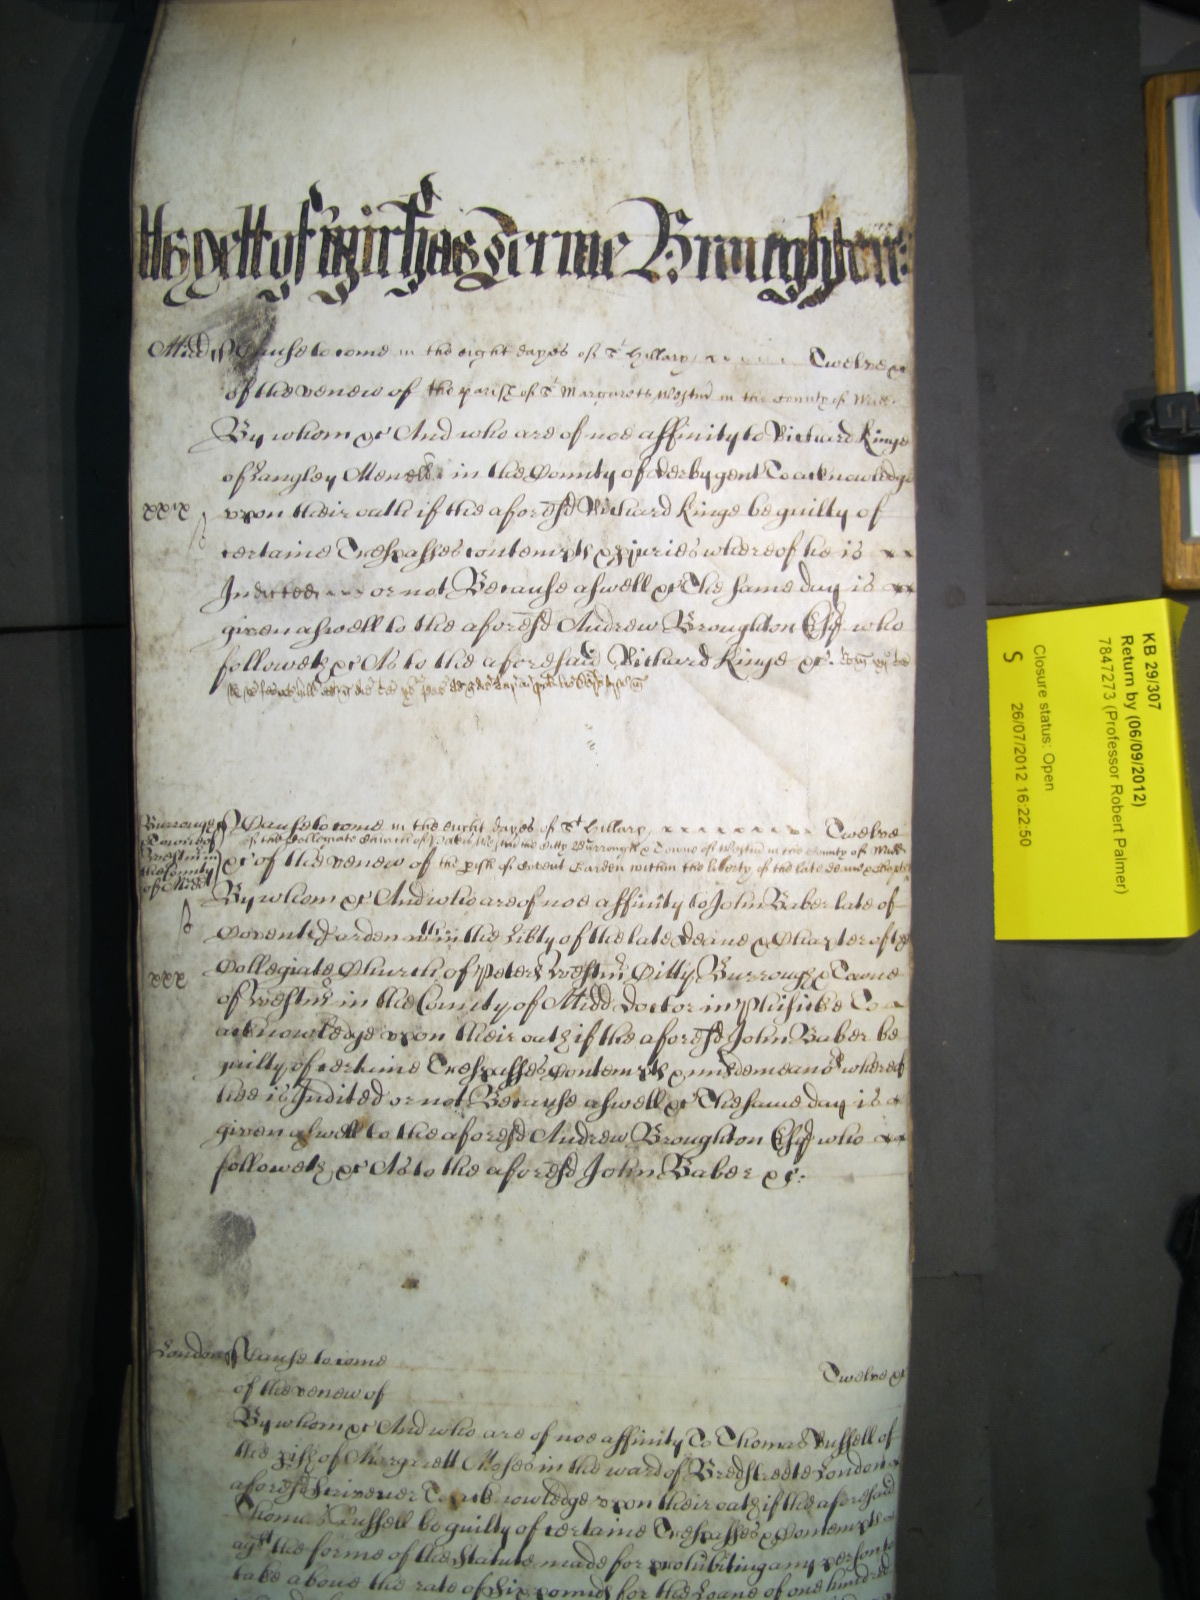 As yett of Mich'as Terme Broughton:
Midd ss Cause to come in the eight dayes of St Hillary Twelve &c
of the venew of the parish of St Margarets Westmr in the County of Midd
By whom &c And who are of noe affinity to Richard Kinge
of Langley in the County of Derby gent To acknowledge
xxix
upon their oath if the aforesd Richard Kinge be guilty of
certaine Trespasses contempts & injuries whereof he is
Indicted or not Because aswell &c The same day is
given aswell to the aforesd Andrew Broughton Esqr who
followeth &c As to the aforesaid Richard Kinge &c.
Burrough &
Towne of
Westmr in
the County
of Midd
Cause to come in the eight dayes of St Hillary Twelve
of the Collegiate Church of Peters Westmr the Citty Burrough & Towne of Westmr in the County of Midd
&c of the venew of the pish of Covent Garden within the liberty of the late Deane & Chapter
By whom &c And who are of noe affinity to John Baber late of
Covent Garden within the Libty of the late Deane & Chapter of the
xxx
Collegiate Church of Peters Westmr Citty Burrough & Towne
of Westmr in the County of Midd Doctor in Phisicke To
acknowledge upon their oath if the aforesd John Baber be
guilty of certaine Trespasses Contempts & misdemeanors whereof
hee is Indited or not Because aswell &c The same day is
given aswell to the aforesd Andrew Broughton Esqr who
followeth &c As to the aforesd John Baber &c:
London ss Cause to come Twelve &c
of the venew of
By whom &c And who are of noe affinity To Thomas Russell of
the pish of Margarett Moses in the ward of Bredstreete London
aforesd Scrivener To acknowledge upon their oath if the aforesaid
Thomas Russell be guilty of certaine Trespasses & Contempts
agt the forme of the Statute made for prohibiting any person to
take above the rate of Six pounds for the Loane of one hundred
KB 29/307
Return by (06/09/2012)
7847273 (Professor Robert Palmer)
Closure status: Open
S 26/07/2012 16:22:50